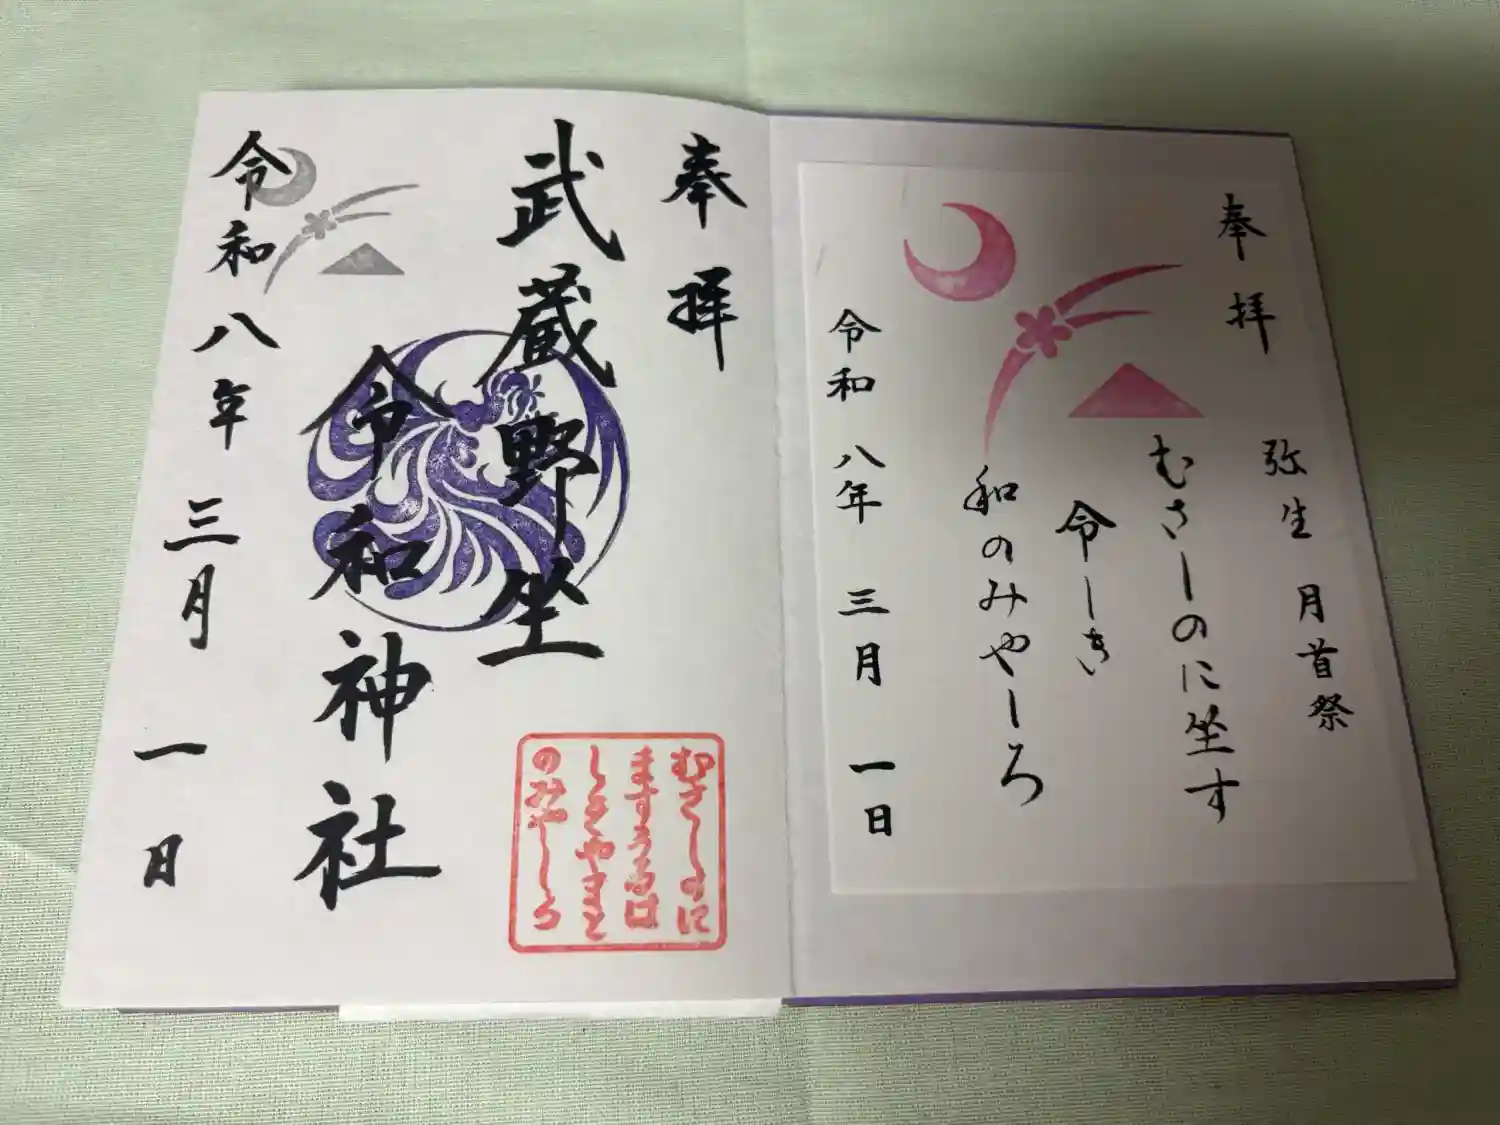 奉拝
弥生 月首祭
むさしのに坐す
令しき
和のみやしろ
令和八年 三月 一日
奉拝
武蔵野坐
令和神社
令和八年 三月 一日
むさしのに
ますうるは
しきやまと
のみやしろ